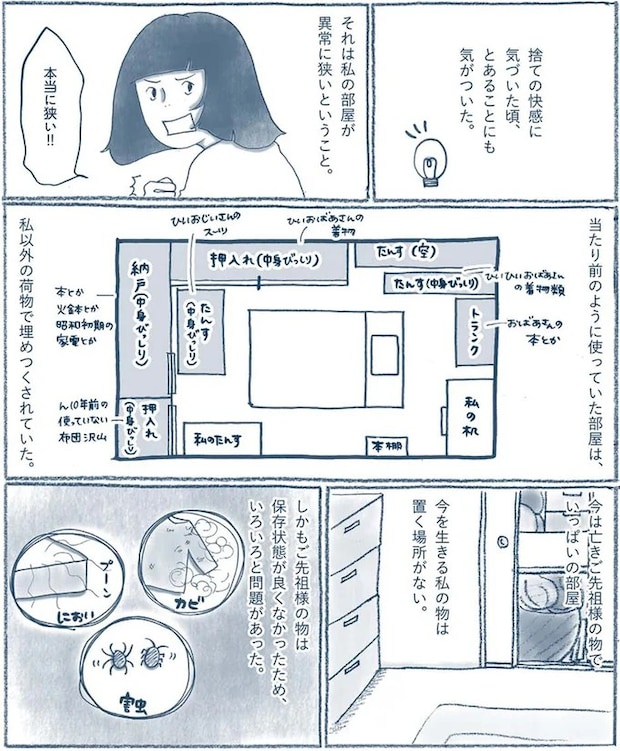 捨ての快感に
気づいた頃、
とあることにも
気がついた。
それは私の部屋が
異常に狭いということ。
本当に狭い!!
当たり前のように使っていた部屋は、
ひいおじいさんの
スーツ
ひいおばあさんの
着物
押入れ(中身びっしり)
たんす(空)
たんす(中身びっしり)
ひいひいおばあさん
の着物類
トランク
おばあさんの
本とか
私の机
本棚
私のたんす
たんす
(中身びっしり)
納戸(中身びっしり)
本とか
火鉢本とか
昭和初期の
家電とか
押入れ
(中身びっしり)
ん10年前の
使っていない
布団沢山
私以外の荷物で埋めつくされていた。
今は亡きご先祖様の物で
いっぱいの部屋
今を生きる私の物は
置く場所がない。
しかもご先祖様の物は
保存状態が良くなかったため、
いろいろと問題があった。
カビ
プーン
におい
害虫